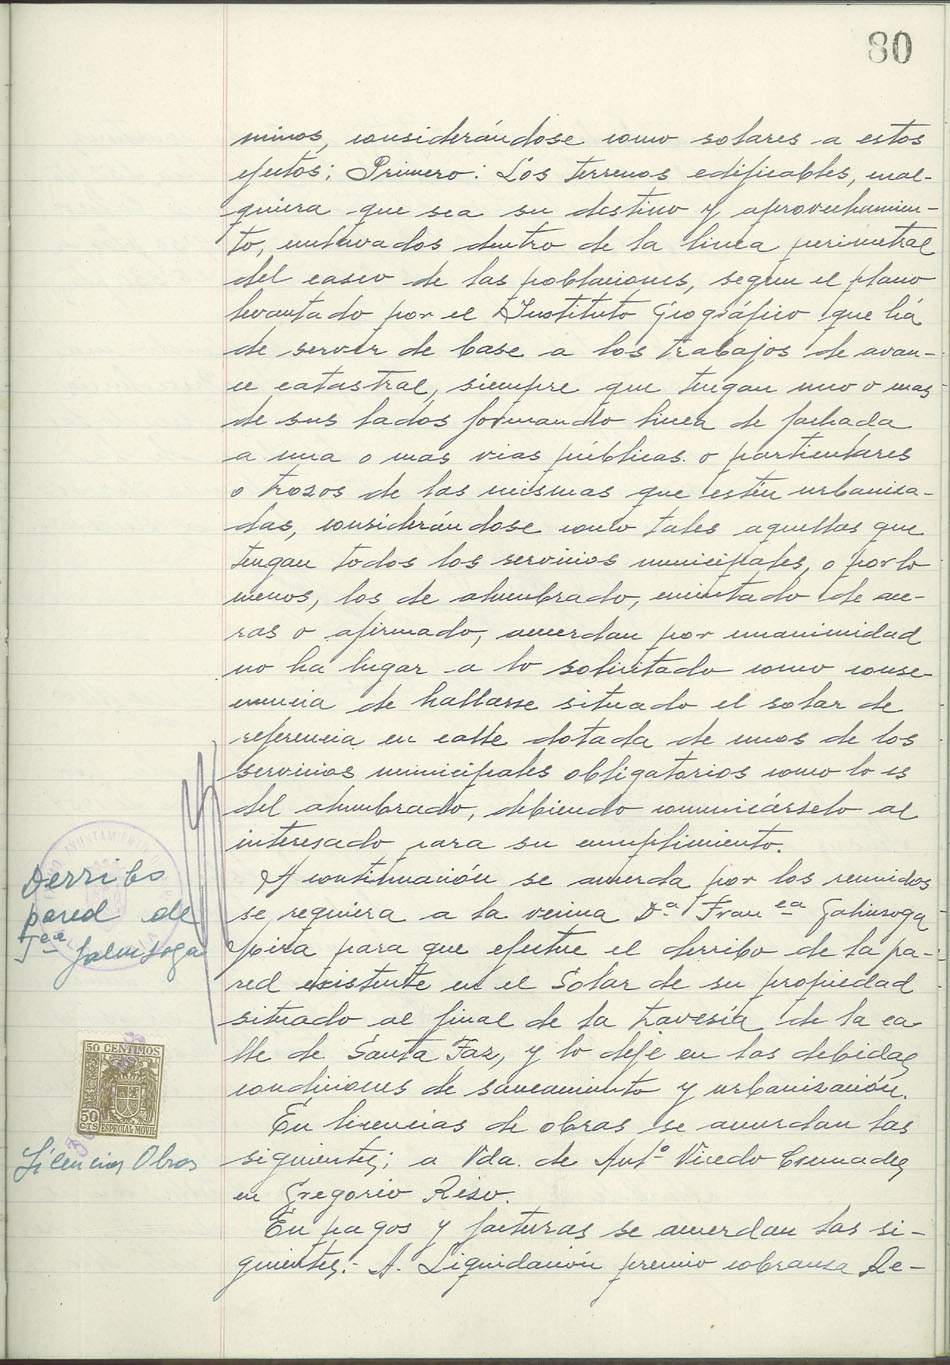 80
minos, considerándose como solares a estos
efectos; Primero: Los terrenos edificables, cual-
quiera que sea su destino y aprovechamien-
to, enclavados dentro de la linea perimetral
del casco de las poblaciones, segun el plano
levantado por el Instituto Geográfico que há
de servir de base a los trabajos de avan-
ce catastral, siempre que tengan uno o mas
de sus lados formando linea de fachada
a una o mas vias públicas o particulares
o trozos de las mismas que estén urbanisa-
das, considerándose como tales aquellas que
tengan todos los servicios municipales, o por lo
menos, los de alumbrado, encintado de ace-
ras o afirmado, acuerdan por unanimidad
no ha lugar a lo solicitado como conse-
cuencia de hallarse situado el solar de
referencia en calle dotada de unos de los
servicios municipales obligatorios como lo es
del alumbrado, debiendo comunicárselo al
interesado para su cumplimiento.
Derribo
pared de
Fca Galinsoga
A continuación se acuerda por los reunidos
se requiera a la vecina Dª Franca Galinsoga
Pira para que efectue el derribo de la pa-
red existente en el Solar de su propiedad
situado al final de la travesía de la ca-
lle de Santa Faz, y lo deje en las debidas
condiciones de saneamiento y urbanización.
50 CENTIMOS
50 CTS ESPECIAL MOVIL
Licencias Obras
En licencias de obras se acuerdan las
siguientes; a Vda. de Antº Vicedo Cremades
en Gregorio Riso.
En pagos y facturas se acuerdan las si-
guientes:- A. Liquidación premio cobransa Re-